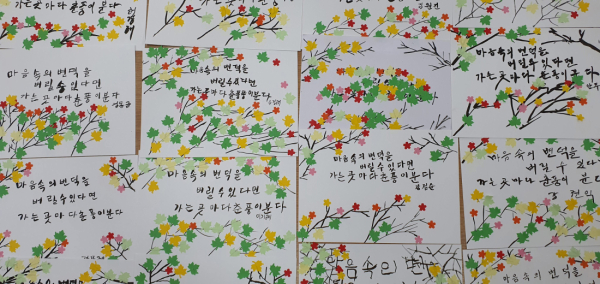 가는곳마다 춘풍이 분다
마음속의 번덕을
버릴 수 있다면
가는곳마다춘풍이분다
마음속의 번덕을
버릴수있다면
가는곳마다춘풍이분다
마음속의 번덕을
버릴 수 있다면
가는곳마다 춘풍이 분다
마음속의번덕을
버릴수있다면
가는곳마다춘풍이분다
마음속의 번덕을
버릴수있다면
가는곳마다춘풍이분다
마음속의 번덕을
버릴수있다면
가는곳마다춘풍이분다
마음속의 번덕을
버릴 수 있다면
가는곳마다 춘풍이 분다
마음속의
마음속의 번덕을